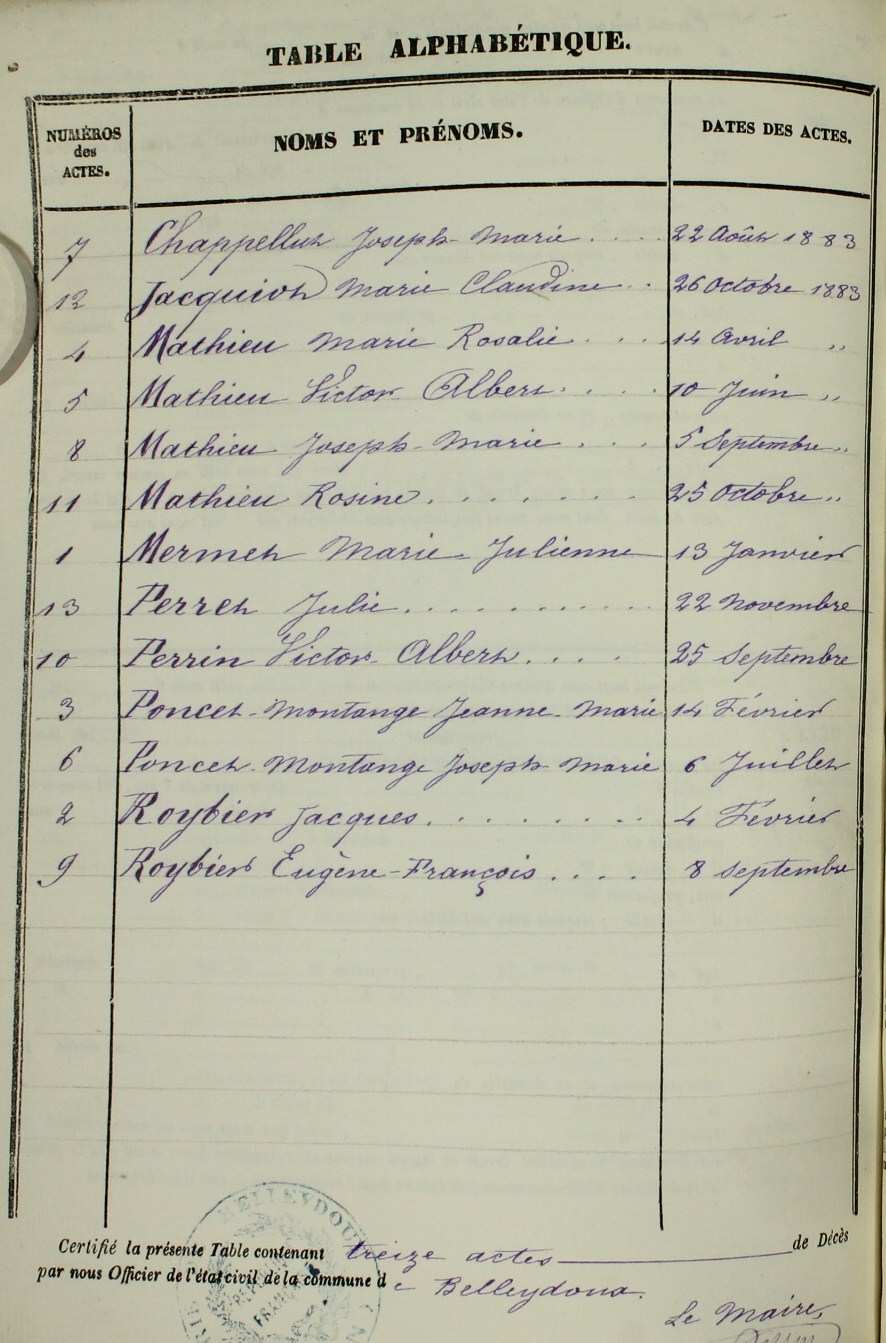 TABLE ALPHABÉTIQUE.
NUMÉROS des ACTES. NOMS ET PRÉNOMS. DATES DES ACTES.
7 Chappellut Joseph-Marie .... 22 Août 1883
12 Jacquiot Marie Claudine .. 26 Octobre 1883
4 Mathieu Marie Rosalie .... 14 Avril "
5 Mathieu Victor Albert .... 10 Juin "
8 Mathieu Joseph-Marie .... 5 Septembre "
11 Mathieu Rosine ........ 25 Octobre "
1 Mermet Marie-Julienne 13 Janvier
13 Perret Julie ........... 22 Novembre
10 Perrin Victor Albert .... 25 Septembre
3 Poncet-Montange Jeanne-Marie 14 Février
6 Poncet-Montange Joseph-Marie 6 Juillet
2 Roybier Jacques ........ 4 Février
9 Roybier Eugène-François .... 8 Septembre
Certifié la présente Table contenant treize actes de Décès
par nous Officier de l'état civil de la commune de Belleydoux.
Le Maire,
BELLEYDOUX